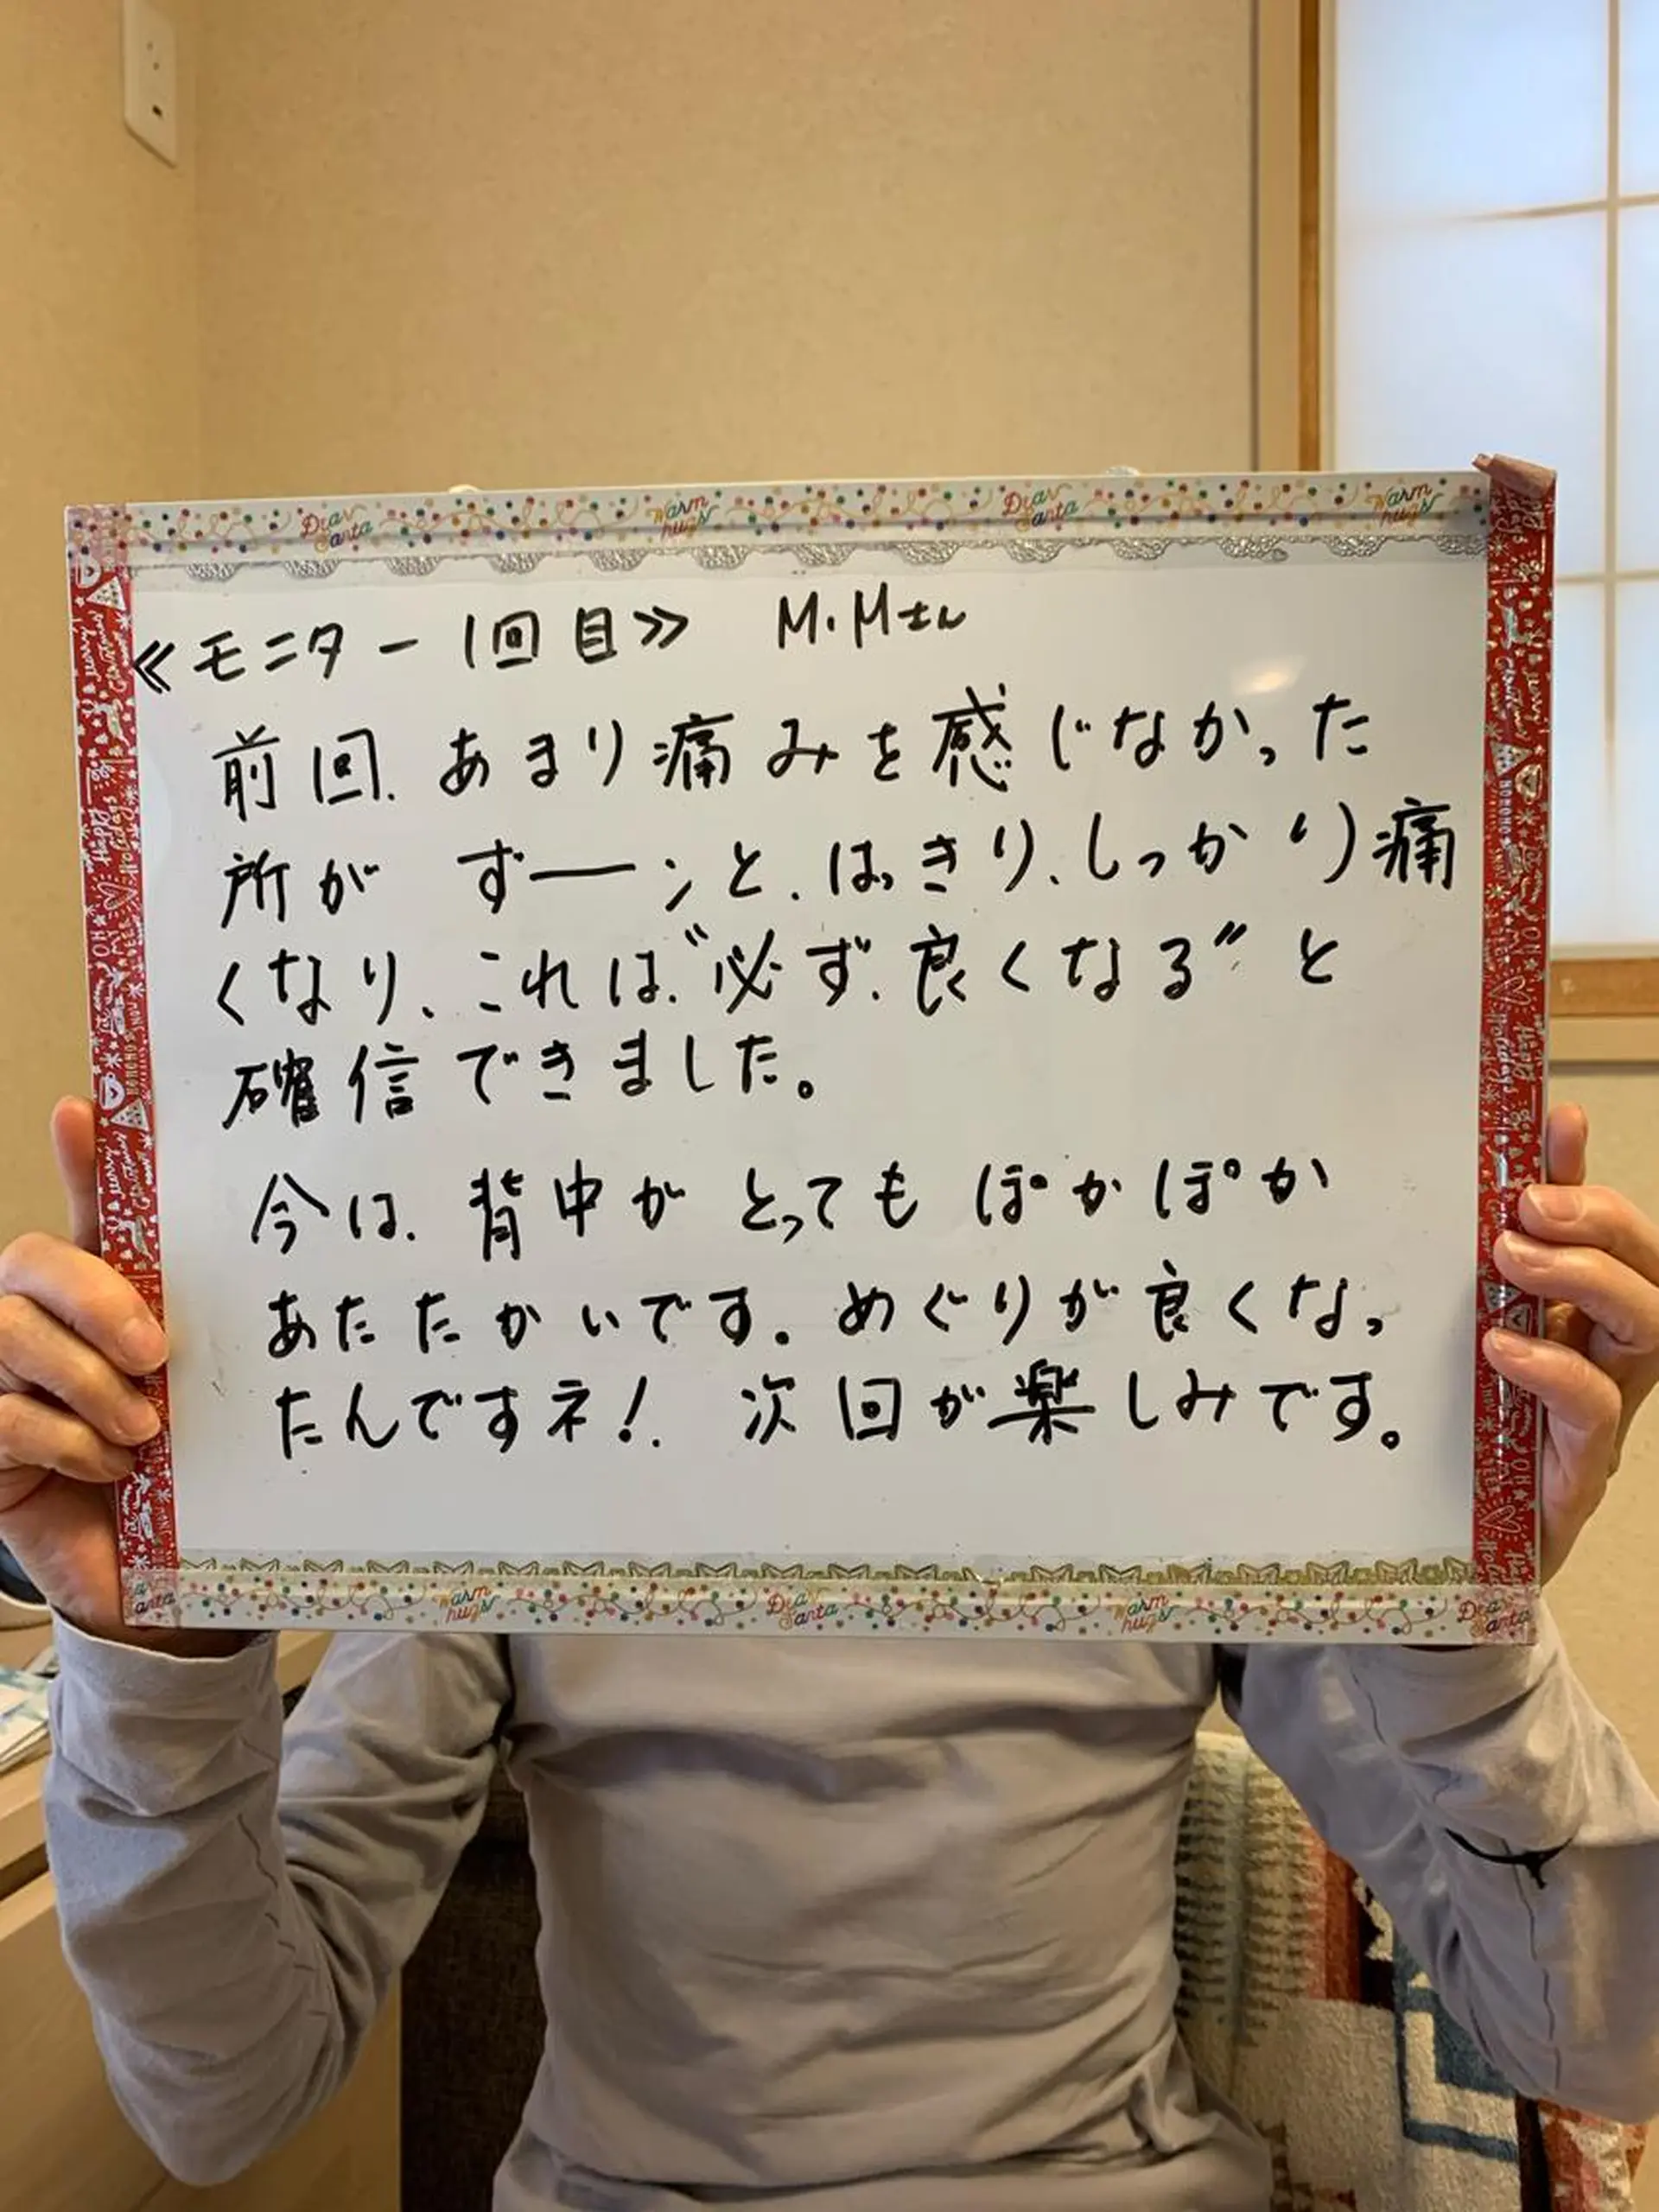 Dear Santa Warm hugs Dear Santa Warm hugs
≪モニター1回目≫ M.Mさん
前回、あまり痛みを感じなかった
所が ずーーンと、はっきり、しっかり痛
くなり、これは、〝必ず、良くなる〟と
確信できました。
今は、背中がとっても ぽかぽか
あたたかいです。めぐりが良くなっ
たんですネ!. 次回が楽しみです。
Warm hugs Dear Santa Warm hugs Dear Santa